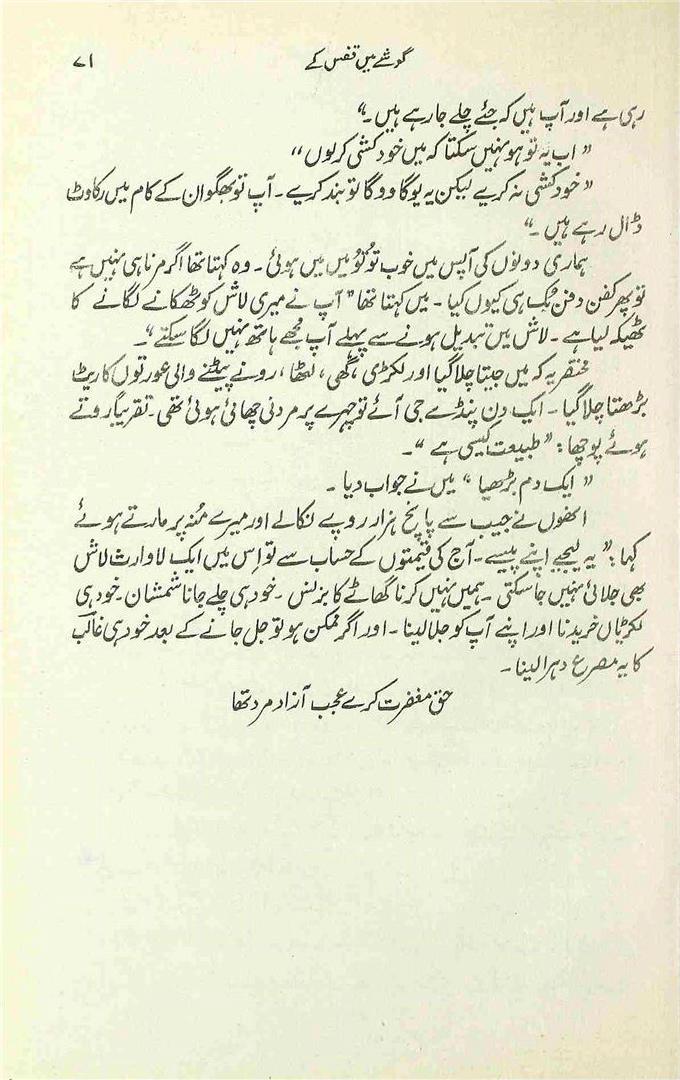 گوشے میں قفس کے ۷۱
رہی ہے اور آپ ہیں کہ جئے چلے جا رہے ہیں۔“
”اب یہ تو ہو نہیں سکتا کہ میں خودکشی کر لوں“
”خودکشی نہ کریے لیکن یہ یوگا ووگا تو بند کریے۔ آپ تو بھگوان کے کام میں رکاوٹ
ڈال رہے ہیں۔“
ہماری دونوں کی آپس میں خوب تُو تُو میں میں ہوئی۔ وہ کہتا تھا اگر مرنا ہی نہیں ہے
تو پھر کفن دفن بُک ہی کیوں کیا۔ میں کہتا تھا ”آپ نے میری لاش کو ٹھکانے لگانے کا
ٹھیکہ لیا ہے۔ لاش میں تبدیل ہونے سے پہلے آپ مجھے ہاتھ نہیں لگا سکتے“۔
مختصر یہ کہ میں جیتا چلا گیا اور لکڑی، گھی، لٹھا، رونے پیٹنے والی عورتوں کا ریٹ
بڑھتا چلا گیا۔ ایک دن پنڈے جی آئے تو چہرے پر مردنی چھائی ہوئی تھی۔ تقریباً روتے
ہوئے پوچھا: ”طبیعت کیسی ہے“۔
”ایک دم بڑھیا“ میں نے جواب دیا۔
انھوں نے جیب سے پانچ ہزار روپے نکالے اور میرے منہ پر مارتے ہوئے
کہا: ”یہ لیجیے اپنے پیسے۔ آج کی قیمتوں کے حساب سے تو اس میں ایک لاوارث لاش
بھی جلائی نہیں جا سکتی۔ ہمیں نہیں کرنا گھاٹے کا بزنس۔ خود ہی چلے جانا شمشان۔ خود ہی
لکڑیاں خریدنا اور اپنے آپ کو جلا لینا۔ اور اگر ممکن ہو تو جل جانے کے بعد خود ہی غالب
کا یہ مصرع دہرا لینا۔
حق مغفرت کرے عجب آزاد مرد تھا